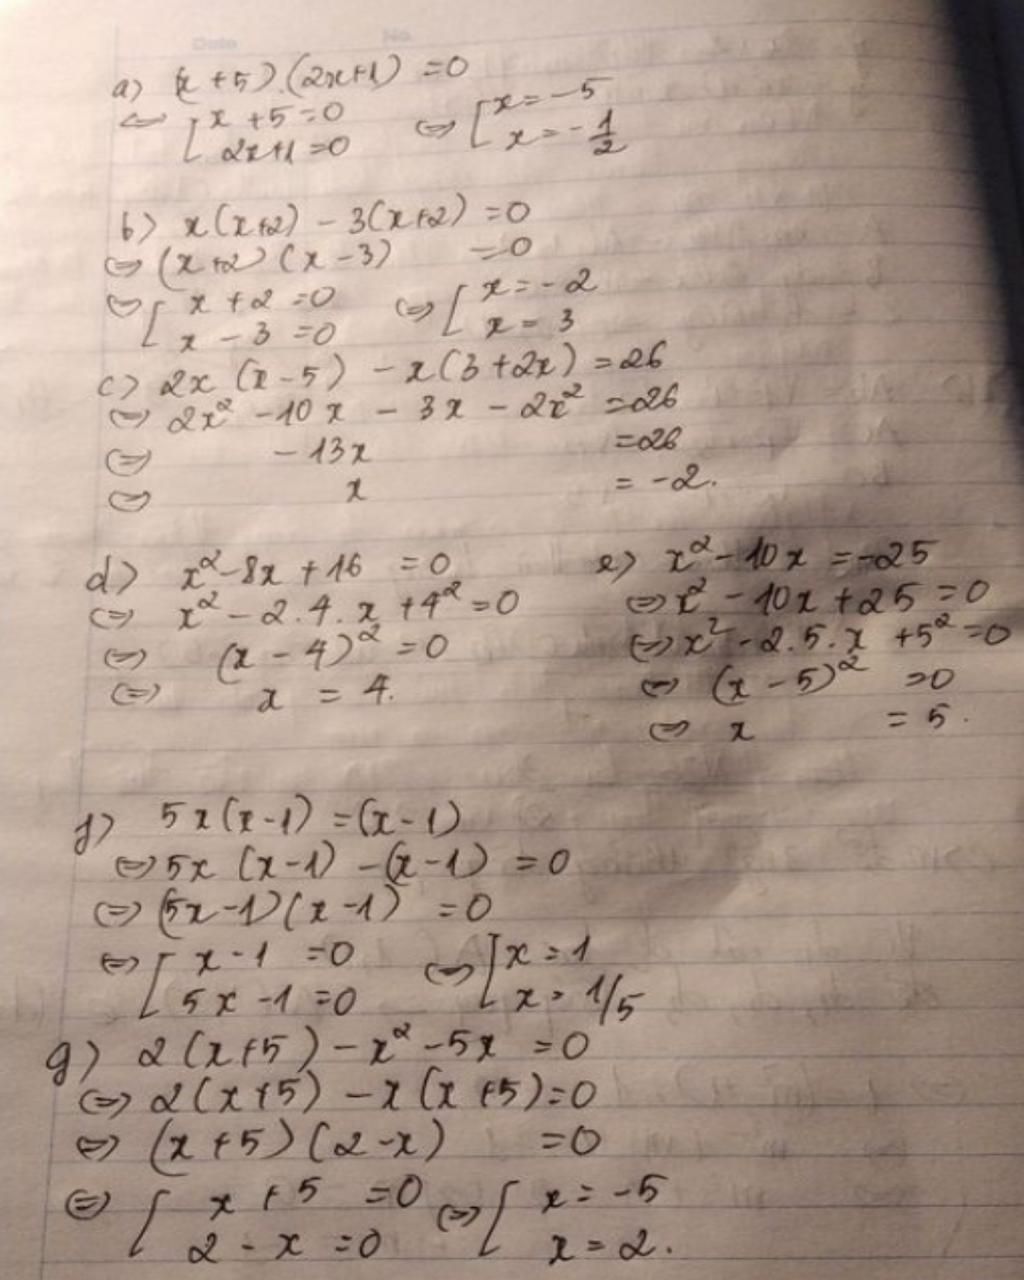 Date No.
a) (x+5).(2x+1) =0
⇔ [ x+5=0 ⇔ [ x=-5
2x+1=0 x=-1/2
b) x(x+2) - 3(x+2) =0
⇔ (x+2)(x-3) =0
⇔ [ x+2 =0 ⇔ [ x=-2
x-3 =0 x=3
c) 2x(x-5) - x(3+2x) =26
⇔ 2x² -10x - 3x - 2x² =26
⇔ -13x =26
⇔ x = -2.
d) x²-8x+16 =0
⇔ x² - 2.4.x +4² =0
⇔ (x-4)² =0
⇔ x = 4.
e) x²-10x =-25
⇔ x² - 10x+25 =0
⇔ x² - 2.5.x +5² =0
⇔ (x-5)² =0
⇔ x = 5.
f) 5x(x-1) =(x-1)
⇔ 5x(x-1) -(x-1) =0
⇔ (5x-1)(x-1) =0
⇔ [ x-1 =0 ⇔ [ x=1
5x-1 =0 x=1/5
g) 2(x+5) -x² -5x =0
⇔ 2(x+5) -x(x+5)=0
⇔ (x+5)(2-x) =0
⇔ [ x+5 =0 ⇔ [ x=-5
2-x =0 x=2.